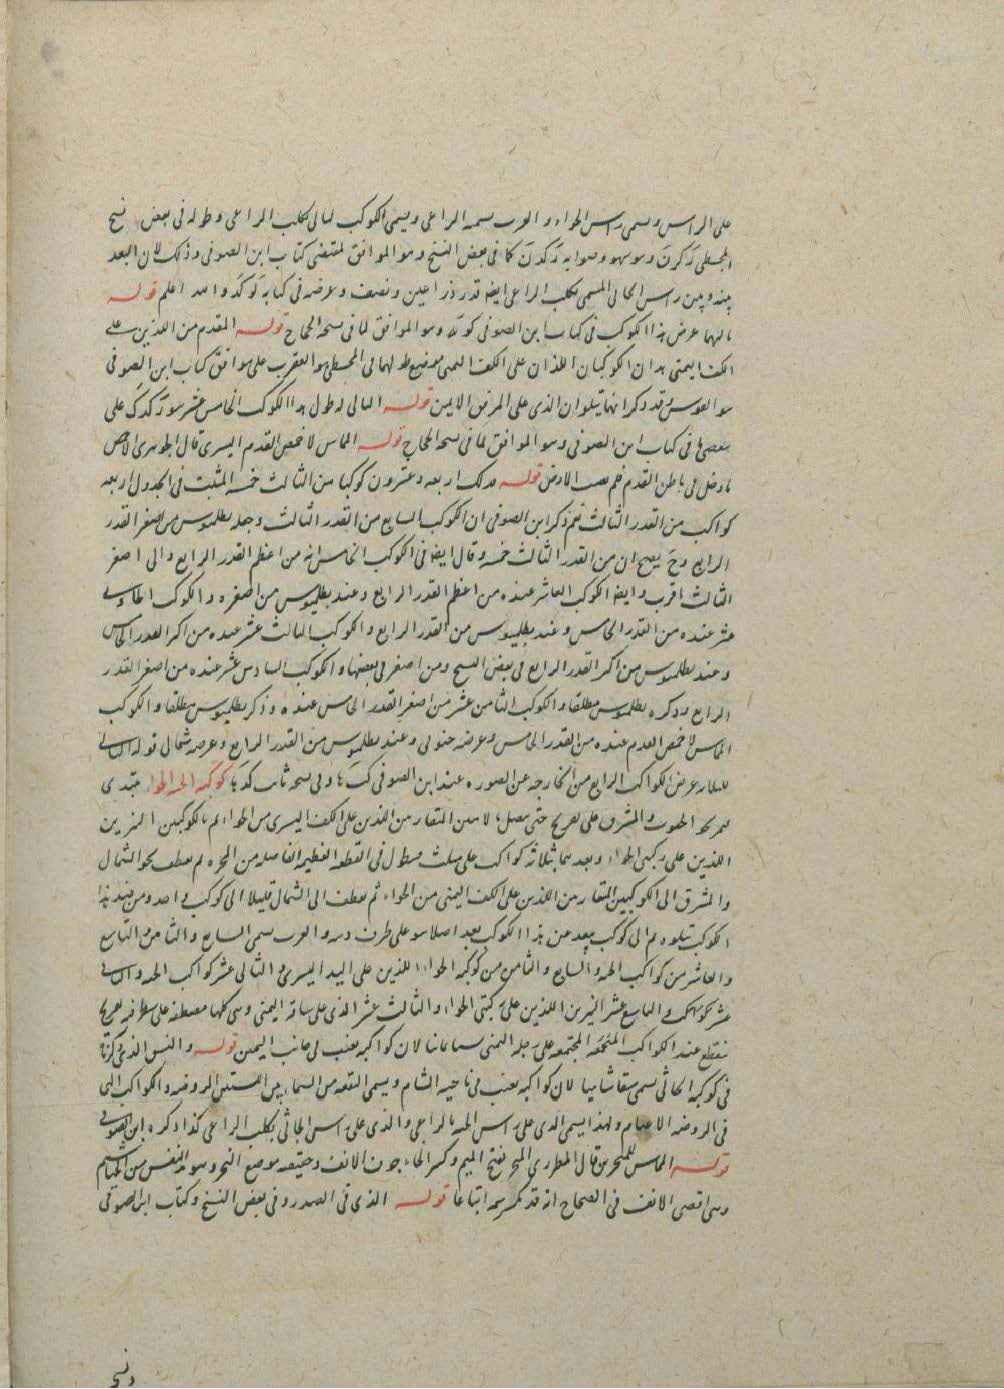 على الراس ويسمى راس الحواء والعرب تسميه الراعى ويسمى الكوكب التالى كلب الراعى وطوله فى بعض نسخ
المجسطى وهو سهو وصوابه كما فى بعض النسخ وهو الموافق لمقتضى كتاب ابن الصوفى وذلك لان البعد
بينه وبين راس الجاثى المسمى بكلب الراعى ايضا قدر ذراعين ونصف وعرضه فى كتابه والله اعلم قوله
تاليهما عرض هذا الكوكب فى كتاب ابن الصوفى وهو الموافق لما فى نسخة الحجاج قوله المقدم من اللذين على
الكف اليمنى هذان الكوكبان اللذان على الكف اليمنى موضع طولهما فى المجسطى هو العقرب على موافق كتاب ابن الصوفى
هو القوس وقد ذكر انهما يتلوان الذى على المرفق الايمن قوله التالى له طول هذا الكوكب الخامس عشر على
بعضها فى كتاب ابن الصوفى وهو الموافق لما فى نسخة الحجاج قوله المماس لاخمص القدم اليسرى قال الجوهرى الاخمص
ما دخل فى باطن القدم فلم يصب الارض قوله فذلك اربعة وعشرون كوكبا من الثالث خمسة المثبت فى الجدول اربعة
كواكب من القدر الثالث نعم ذكر ابن الصوفى ان الكوكب السابع من القدر الثالث وجعله بطلميوس من اصغر القدر
الرابع وح يصح ان من القدر الثالث خمسة وقال ايضا فى الكوكب الخامس انه من اعظم القدر الرابع والى اصغر
الثالث اقرب وايضا الكوكب العاشر عنده من اعظم القدر الرابع وعند بطلميوس من اصغره والكوكب الحادى
عشر عنده من القدر الخامس وعند بطلميوس من القدر الرابع والكوكب الثالث عشر عنده من اكبر القدر الخامس
وعند بطلميوس من اكبر القدر الرابع فى بعض النسخ ومن اصغر فى بعضها والكوكب السادس عشر عنده من اصغر القدر
الرابع وذكره بطلميوس مطلقا والكوكب الثامن عشر من اصغر القدر الخامس عنده وذكر بطلميوس مطلقا والكوكب
المماس لاخمص القدم عنده من القدر الخامس وعرضه جنوبى وعند بطلميوس من القدر الرابع وعرضه شمالى قوله التالى
للثلاثة عرض الكواكب الرابع من الخارجة عن الصورة عند ابن الصوفى وفى نسخة ثابت كوكبة الحية الحواء يبتدى
نحو الجنوب والمشرق على تعريج حتى يتصل من المتقاربين اللذين على الكف اليسرى من الحواء ثم بالكوكبين النيرين
اللذين على ركبتى الحواء وبعدهما بثلاثة كواكب على مثلث مستطيل فى القطعة العظيمة الفاصلة من المجرة ثم يعطف نحو الشمال
والمشرق الى الكوكبين المتقاربين اللذين على الكف اليمنى من الحواء ثم يعطف الى الشمال قليلا الى كوكب واحد ومن عند هذا
الكوكب يتلوه ثم الى كوكب يبعد عن هذا الكوكب بعد اصلا هو على طرف ذنبه والعرب تسمى السابع والثامن والتاسع
والعاشر من كواكب الحية والسابع والثامن من كوكبة الحواء اللذين على اليد اليسرى والثانى عشر كواكب الحية والثانى
عشر والسابع عشر النيرين اللذين على ركبتى الحواء والثالث عشر الذى على ساقه اليمنى وهى كلها مصطفة على سطر فيه تعريج
ينقطع عند الكواكب المجتمعة على رجله اليمنى نسقا يمانيا لان كواكبه تغيب فى جانب اليمن قوله والنسق الذى ذكرناه
فى كوكبة الجاثى يسمى نسقا شاميا لان كواكبه تغيب فى ناحية الشام ويسمى البقعة من السماء بين النسقين الروضة والكواكب التى
فى الروضة الاغنام ولهذا يسمى الذى على راس الحية بالراعى والذى على راس الجاثى بكلب الراعى كذا ذكره ابن الصوفى
قوله المماس للمنخرين قال المطرزى المنخر بفتح الميم وكسر الخاء جوف الانف وحقيقته موضع النخر وهو مد النفس من الخياشيم
وهى اقصى الانف فى الصحاح انه قد تكسر ميمه اتباعا قوله الذى فى الصدر وفى بعض النسخ وكتاب ابن الصوفى